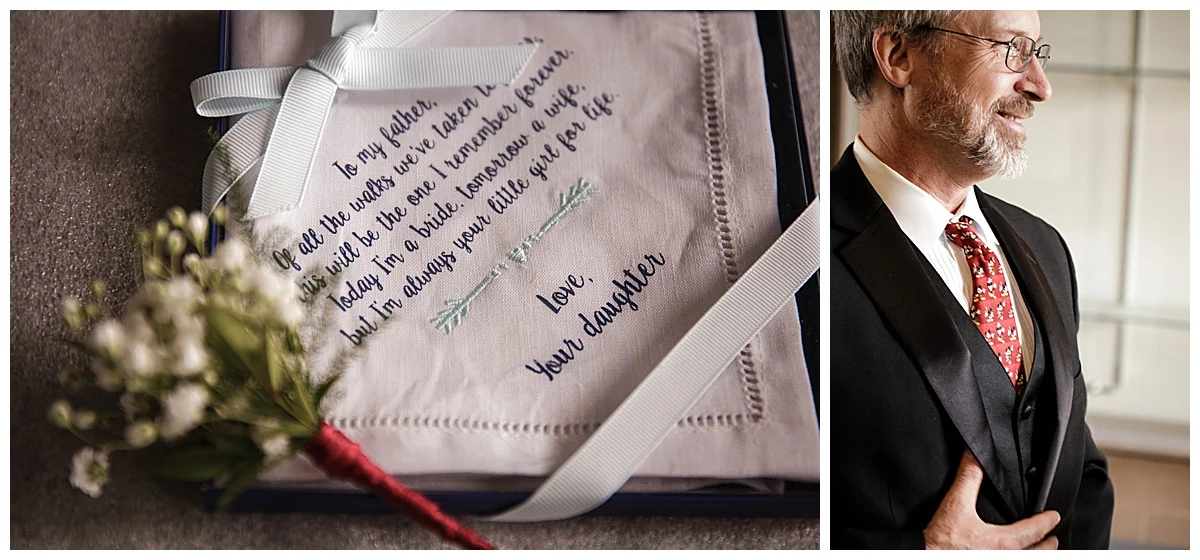 To my father,
Of all the walks we've taken
this will be the one I remember forever.
Today I'm a bride, tomorrow a wife,
but I'm always your little girl for life.
Love,
Your daughter